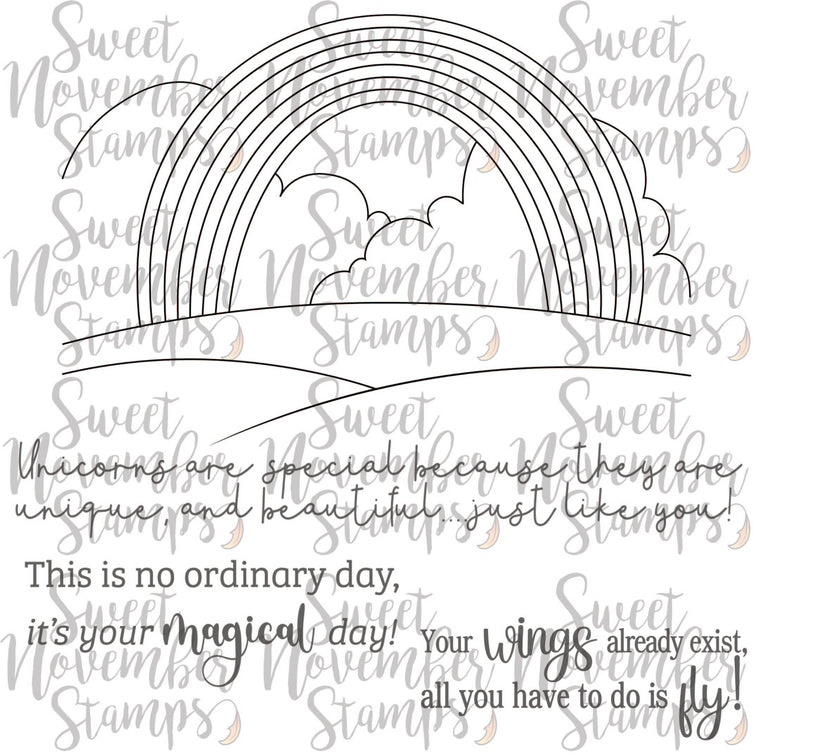 Sweet Sweet Sweet
November November November
Stamps Stamps Stamps
Sweet Sweet Sweet
November November November
Stamps Stamps Stamps
Sweet Sweet Sweet
November November November
Unicorns are special because they are
unique, and beautiful...just like you!
Stamps Stamps Stamps
This is no ordinary day,
it's your magical day!
Your wings already exist,
all you have to do is fly!
Sweet Sweet Sweet
November November November
Stamps Stamps Stamps